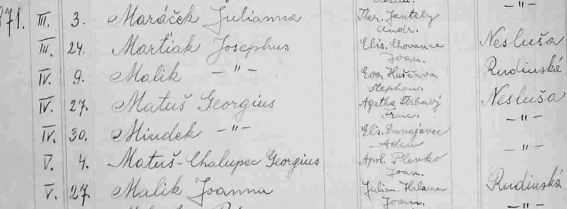 – " –
871. III. 3. Maráček Julianna Ther. Jantely – " –
Andr.
III. 24. Martiak Josephus Elis. Chovanec Nesluša
Joan.
IV. 9. Malik – " – Eva Rudinská
Stephan.
IV. 27. Matuš Georgius Agatha Nesluša
IV. 30. Mindek – " – Elis. Dunajovec – " –
Adam
V. 4. Matuš-Chalupec Georgius Apol. Plevko – " –
Joan.
V. 27. Malik Joanna Julian. Rudinská
Joan. – " –